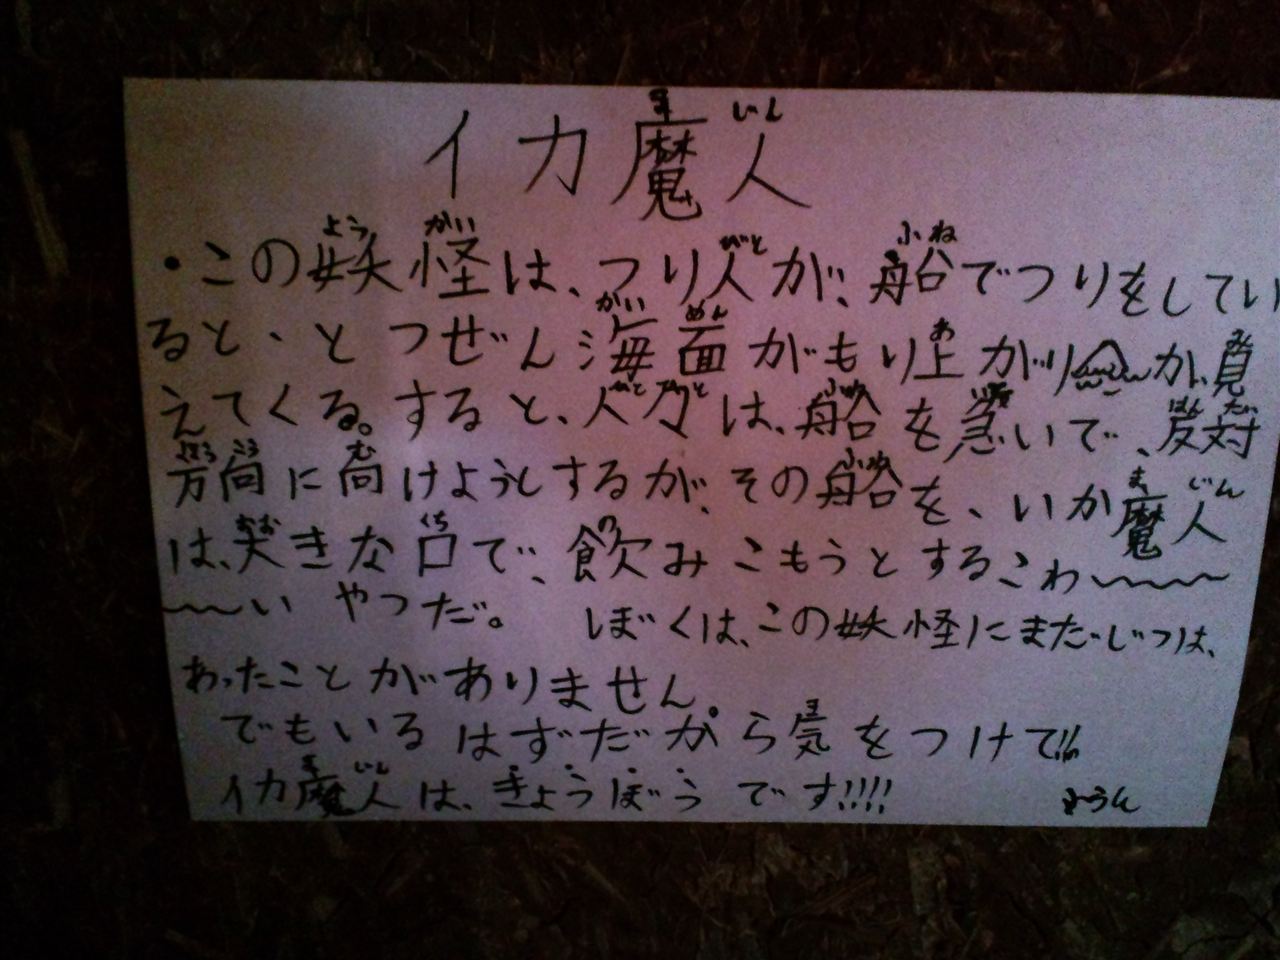 イカ魔人
・この妖怪は、つり人が、船でつりをしてい
ると、とつぜん海面がもり上がりが、見
えてくる。すると、人々は、船を急いで、反対
方向に向けようとするが、その船を、いか魔人
は、大きな口で、飲みこもうとするこわ〜〜〜
〜〜いやつだ。 ぼくは、この妖怪にまだじつは、
あったことがありません。
でもいるはずだから気をつけて!!
イカ魔人は、きょうぼうです!!!!